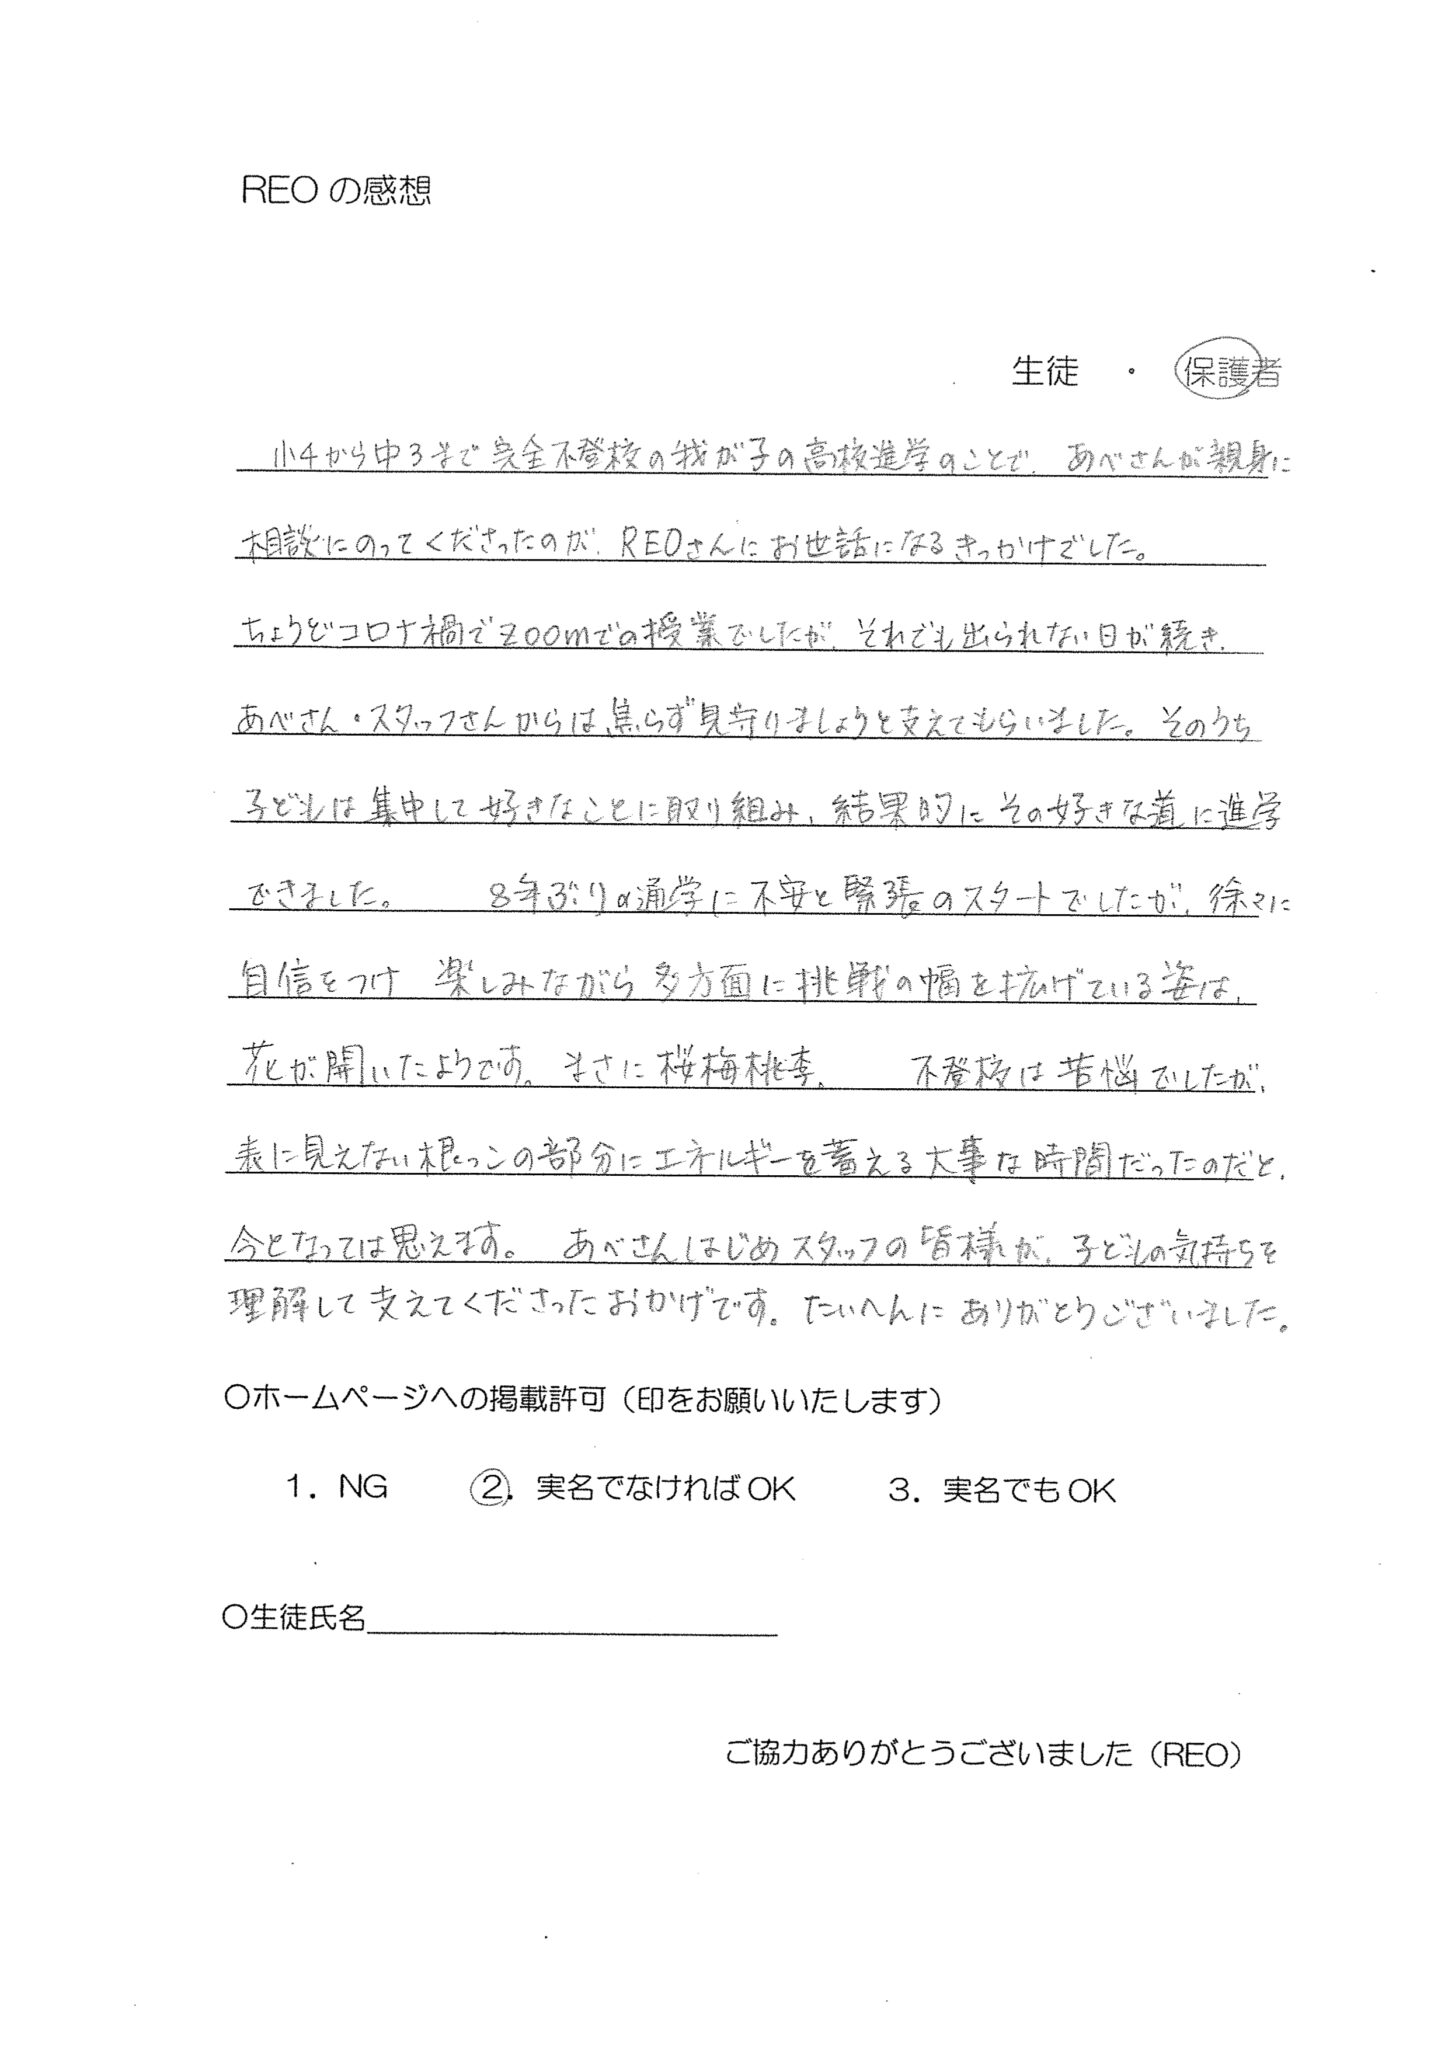 REOの感想
生徒 ・ 保護者
小4から中3まで完全不登校の我が子の高校進学のことで、あべさんが親身に
相談にのってくださったのが、REOさんにお世話になるきっかけでした。
ちょうどコロナ禍でzoomでの授業でしたが、それでも出られない日が続き、
あべさん・スタッフさんからは、焦らず見守りましょうと支えてもらいました。そのうち
子どもは集中して好きなことに取り組み、結果的にその好きな道に進学
できました。 8年ぶりの通学に不安と緊張のスタートでしたが、徐々に
自信をつけ 楽しみながら多方面に挑戦の幅を拡げている姿は、
花が開いたようです。まさに桜梅桃李。 不登校は苦悩でしたが、
表に見えない根っこの部分にエネルギーを蓄える大事な時間だったのだと、
今となっては思えます。 あべさんはじめスタッフの皆様が、子どもの気持ちを
理解して支えてくださったおかげです。たいへんにありがとうございました。
○ホームページへの掲載許可（印をお願いいたします）
1．NG ②．実名でなければOK 3．実名でもOK
○生徒氏名
ご協力ありがとうございました（REO）